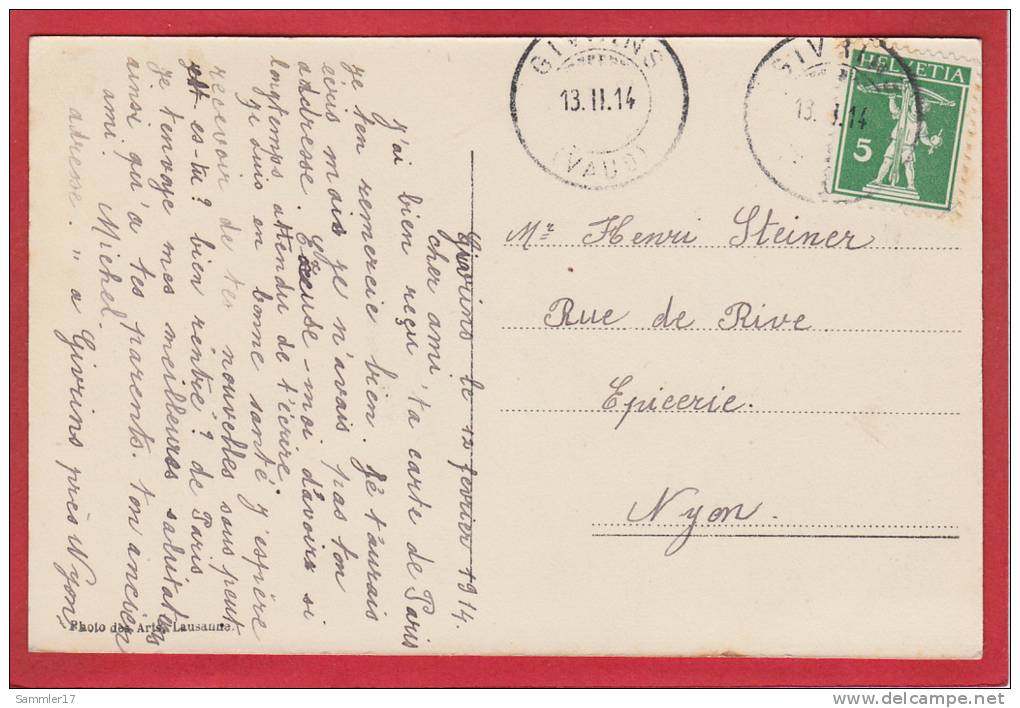 GIVRINS
13.II.14
(VAUD)
GIVRI
13. I.14
HELVETIA
5
Mr Henri Steiner
Rue de Rive
Epicerie.
Nyon.
Givrins le 12 fevrier 1914.
cher ami
J'ai bien reçu ta carte de Paris
je t'en remercie bien. Je t'aurais
ecris mais je n'avais pas ton
addresse. Excuse-moi d'avoire si
longtemps attendu de t'écrire.
Je suis en bonne santé j'espère
recevoir de tes nouvelles sous peut
es-tu? bien rentré? de Paris
Je t'envoye mes meilleures salutations
ainsi qu'a tes parents. ton ancien
ami. Michel.
adresse. " a Givrins près Nyon.
Photo des Arts, Lausanne.
Sammler17
www.delcampe.net